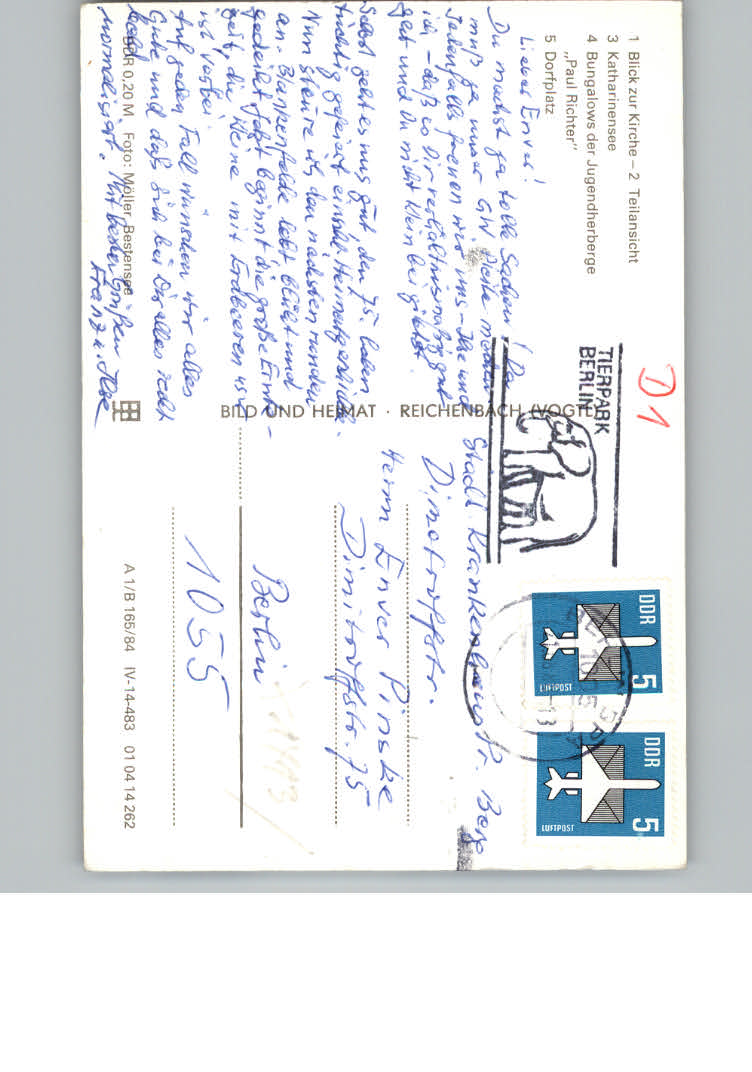 1 Blick zur Kirche – 2 Teilansicht
3 Katharinensee
4 Bungalows der Jugendherberge
„Paul Richter“
5 Dorfplatz
Lieber Enver!
Du machst ja tolle Sachen! Da
muß ja unser GW Pleite machen
Jedenfalls freuen wir uns – Ilse und
ich – daß es Dir verhältnismäßig gut
geht und Du nicht klein bei gibst
Selbst geht es uns gut, den 75. haben
tüchtig gefeiert
Nun steure ich den nächsten runden
an. Blankenfelde lebt blüht und
gedeiht. Jetzt beginnt die große Ernte-
zeit, die kleine mit Erdbeeren usw
ist vorbei.
Auf jeden Fall wünschen wir alles
Gute und daß sich bei Dir alles recht
bald
normalisiert. Mit besten Grüßen
Franz u. Ilse
DDR 0,20 M Foto: Möller, Bestensee
BILD UND HEIMAT · REICHENBACH (VOGTL)
D1
TIERPARK
BERLIN
DDR
5
LUFTPOST
DDR
5
LUFTPOST
Städt. Krankenhaus Pr. Berg
Dimitroffstr.
Herrn Enver Pinske
Dimitroffstr. 75
Berlin
1055
A 1/B 165/84 IV-14-483 01 04 14 262